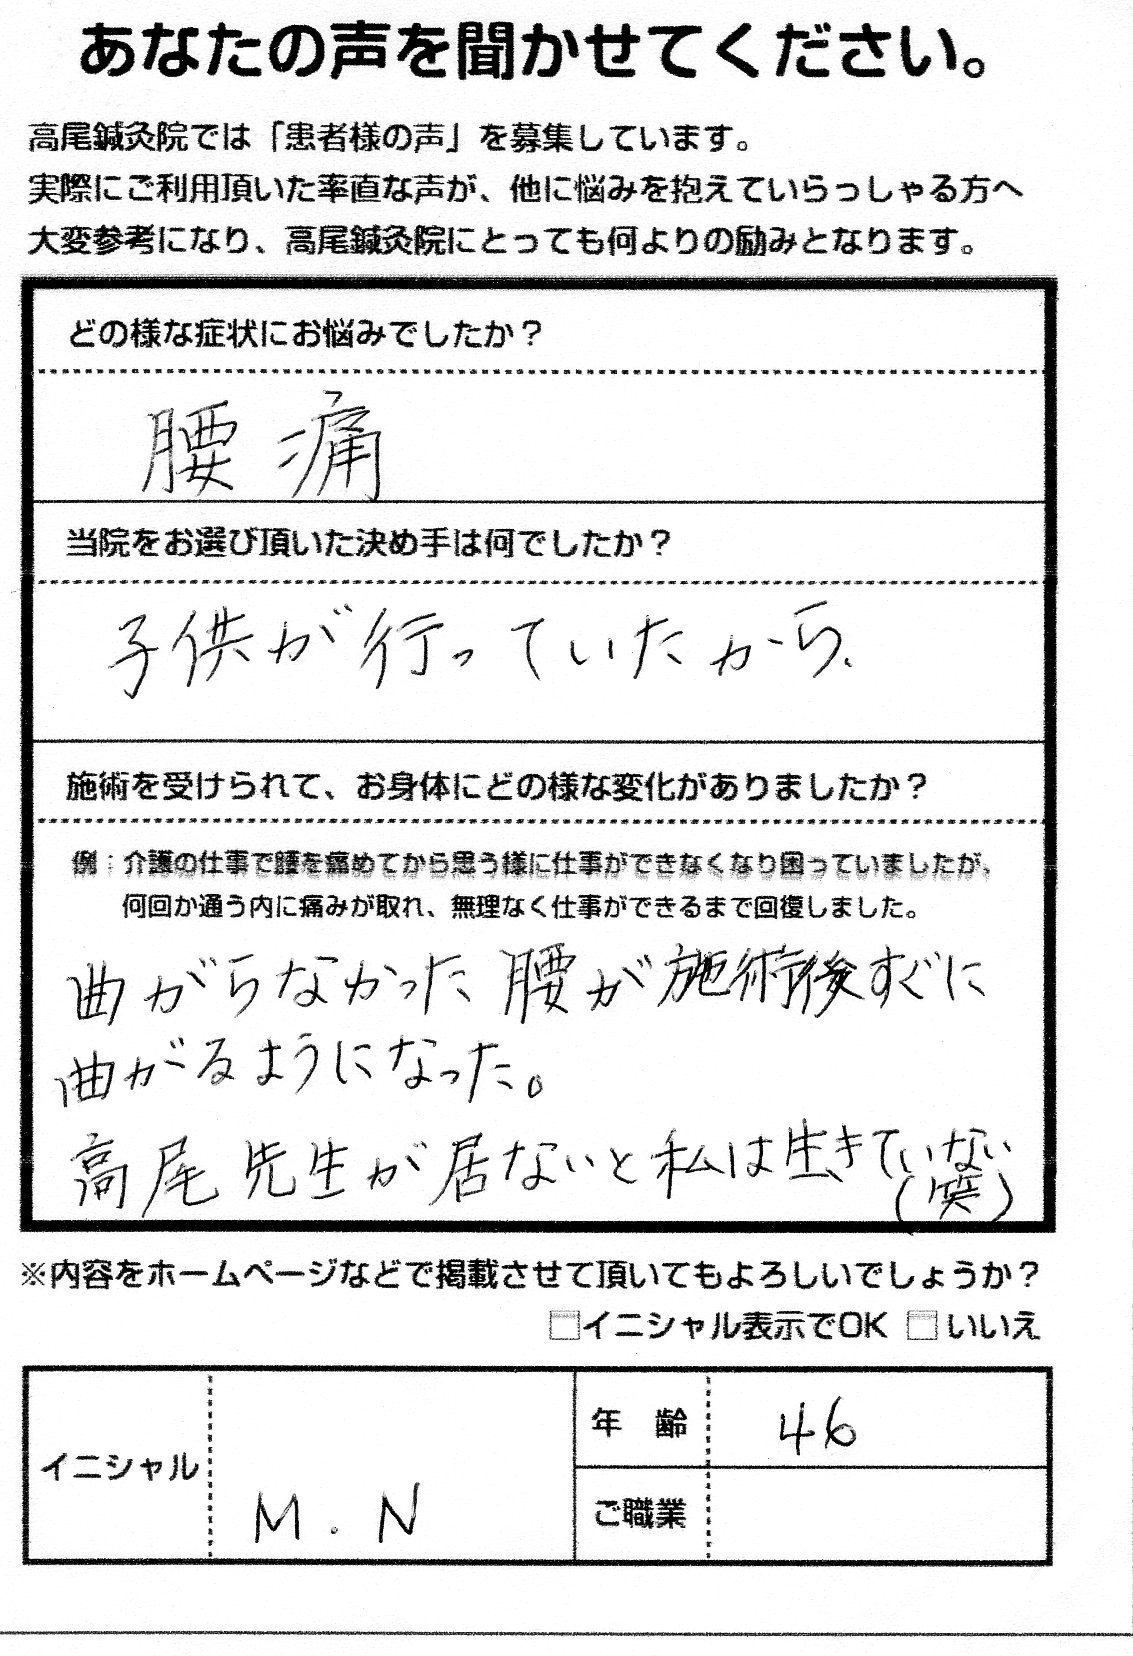 あなたの声を聞かせてください。
高尾鍼灸院では「患者様の声」を募集しています。
実際にご利用頂いた率直な声が、他に悩みを抱えていらっしゃる方へ
大変参考になり、高尾鍼灸院にとっても何よりの励みとなります。
どの様な症状にお悩みでしたか？
腰痛
当院をお選び頂いた決め手は何でしたか？
子供が行っていたから、
施術を受けられて、お身体にどの様な変化がありましたか？
例：介護の仕事で腰を痛めてから思う様に仕事ができなくなり困っていましたが、
何回か通う内に痛みが取れ、無理なく仕事ができるまで回復しました。
曲がらなかった腰が施術後すぐに
曲がるようになった。
高尾先生が居ないと私は生きていない
(笑)
※内容をホームページなどで掲載させて頂いてもよろしいでしょうか？
□イニシャル表示でOK □いいえ
イニシャル M.N
年齢 46
ご職業